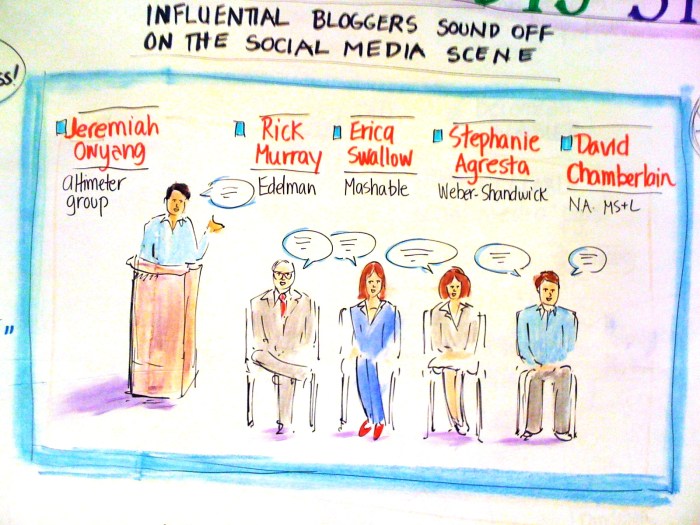 INFLUENTIAL BLOGGERS SOUND OFF
ON THE SOCIAL MEDIA SCENE
ss!
Jeremiah
Owyang
altimeter
group
Rick
Murray
Edelman
Erica
Swallow
Mashable
Stephanie
Agresta
Weber-Shandwick
David
Chamberlain
NA. MS+L
"